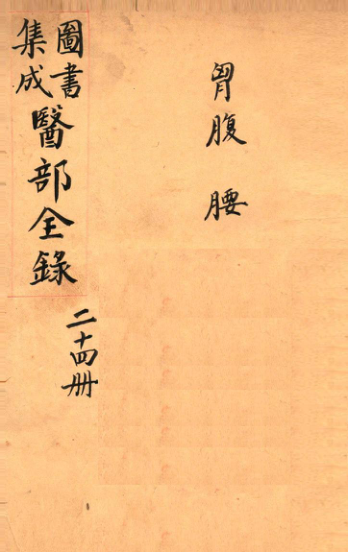 胷腹　腰
圖書
集成
醫部全錄
二十四册